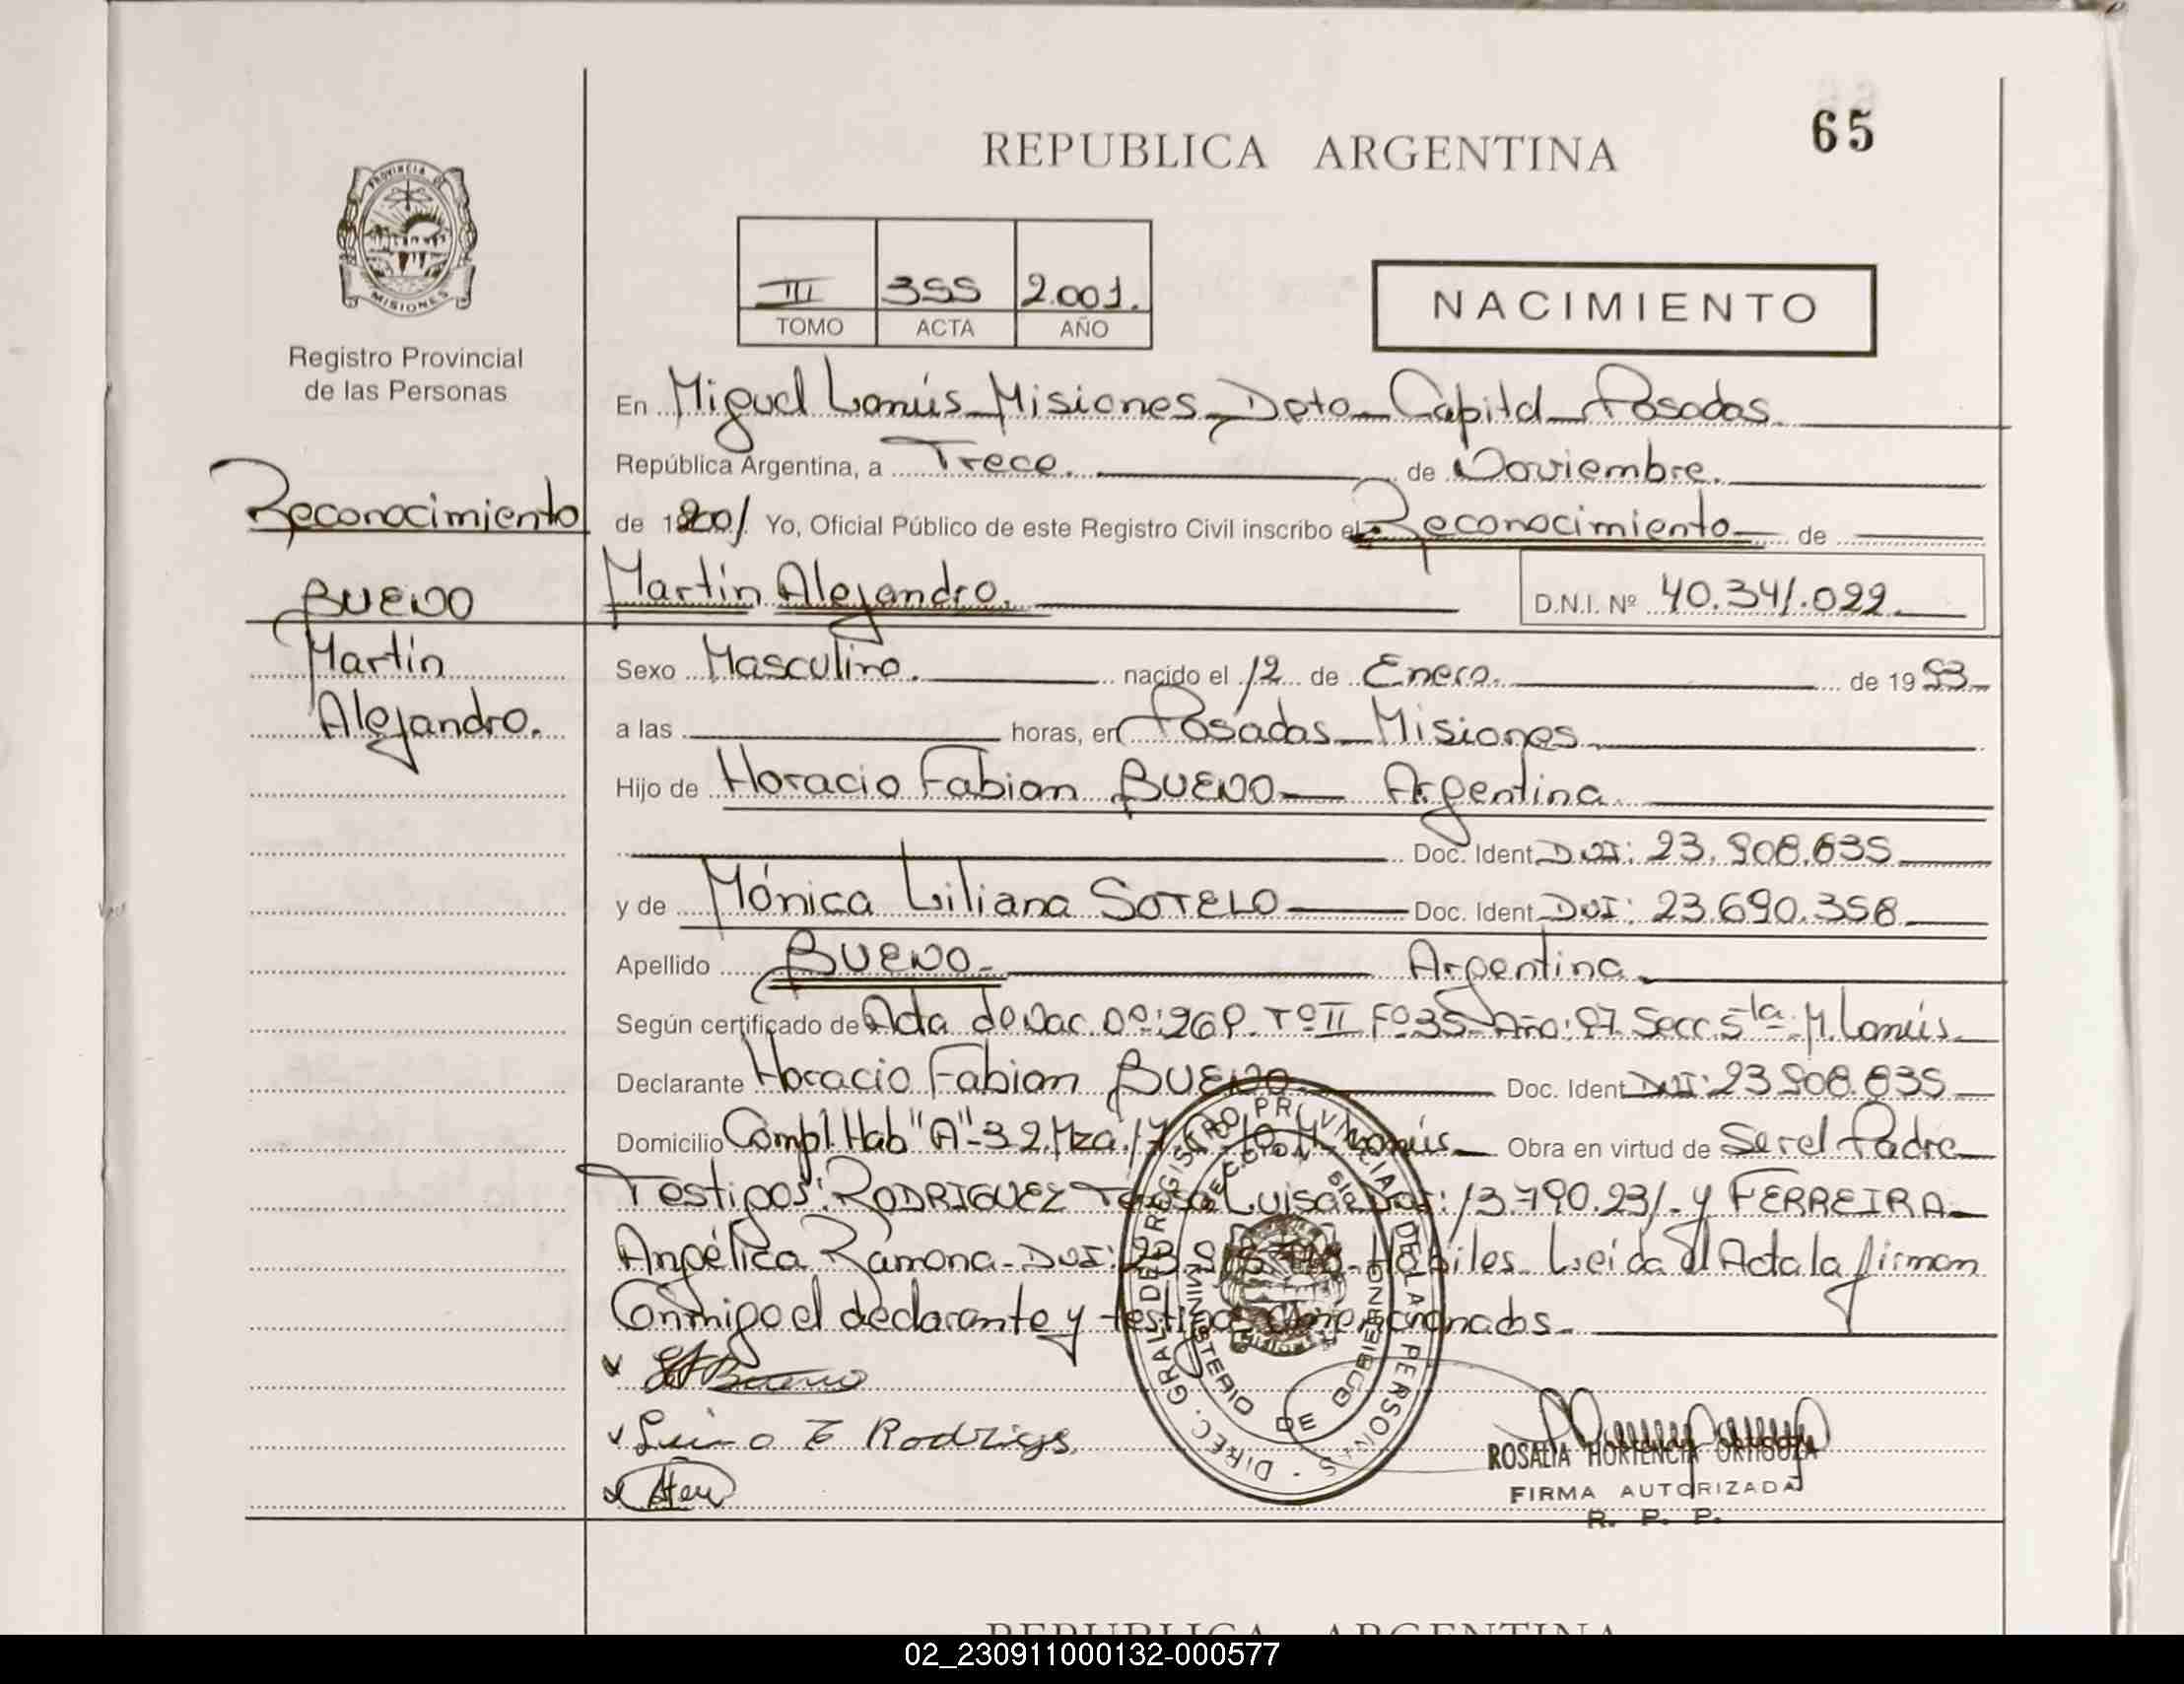 65
REPUBLICA ARGENTINA
PROVINCIA DE
MISIONES
III 355 2.001.
TOMO ACTA AÑO
NACIMIENTO
Registro Provincial
de las Personas
En Miguel Lanús Misiones, Dpto Capital Posadas
República Argentina, a Trece. de Noviembre.
Reconocimiento
de 2001 Yo, Oficial Público de este Registro Civil inscribo el Reconocimiento de
BUENO
Martín Alejandro.
D.N.I. Nº 40.341.022
Martín
Sexo Masculino. nacido el 12 de Enero. de 1993
Alejandro.
a las horas, en Posadas Misiones
Hijo de Horacio Fabian BUENO Argentina
Doc. Ident DNI: 23.908.635
y de Mónica Liliana SOTELO Doc. Ident DNI: 23.690.358
Apellido BUENO Argentina
Según certificado de Acta de Nac. Nº: Tº II Fº 35 Año: 97 Secc. 5ta M. Lanús
Declarante Horacio Fabian BUENO Doc. Ident DNI: 23.908.635
Domicilio Compl. Hab "A" 32 Mza. 17 M. Lanús Obra en virtud de Ser el Padre
Testigos: RODRIGUEZ Teresa Luisa DNI: 13.790.231. y FERREIRA
Angélica Ramona DNI: Hábiles Leida el Acta la firman
Conmigo el declarante y testigos mencionados.
DIREC. GRAL. DEL REGISTRO PROVINCIAL DE LAS PERSONAS
MINISTERIO DE GOBIERNO
ROSALIA HORTENCIA ORTIGOZA
FIRMA AUTORIZADA
R. P. P.
REPUBLICA ARGENTINA
02_230911000132-000577